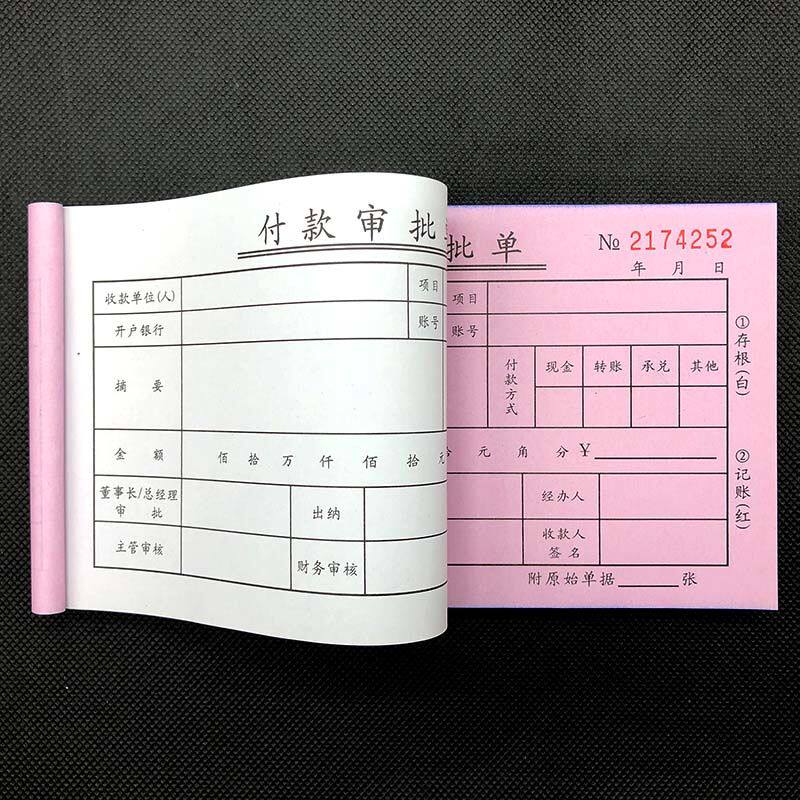 付款审批
批单
№ 2174252
年 月 日
收款单位(人)
项目
项目
开户银行
账号
账号
摘 要
付款方式
现金 转账 承兑 其他
金 额
佰 拾 万 仟 佰 拾 元
元 角 分 ¥
董事长/总经理
审 批
出纳
经办人
主管审核
财务审核
收款人
签名
附原始单据 张
①存根(白)
②记账(红)